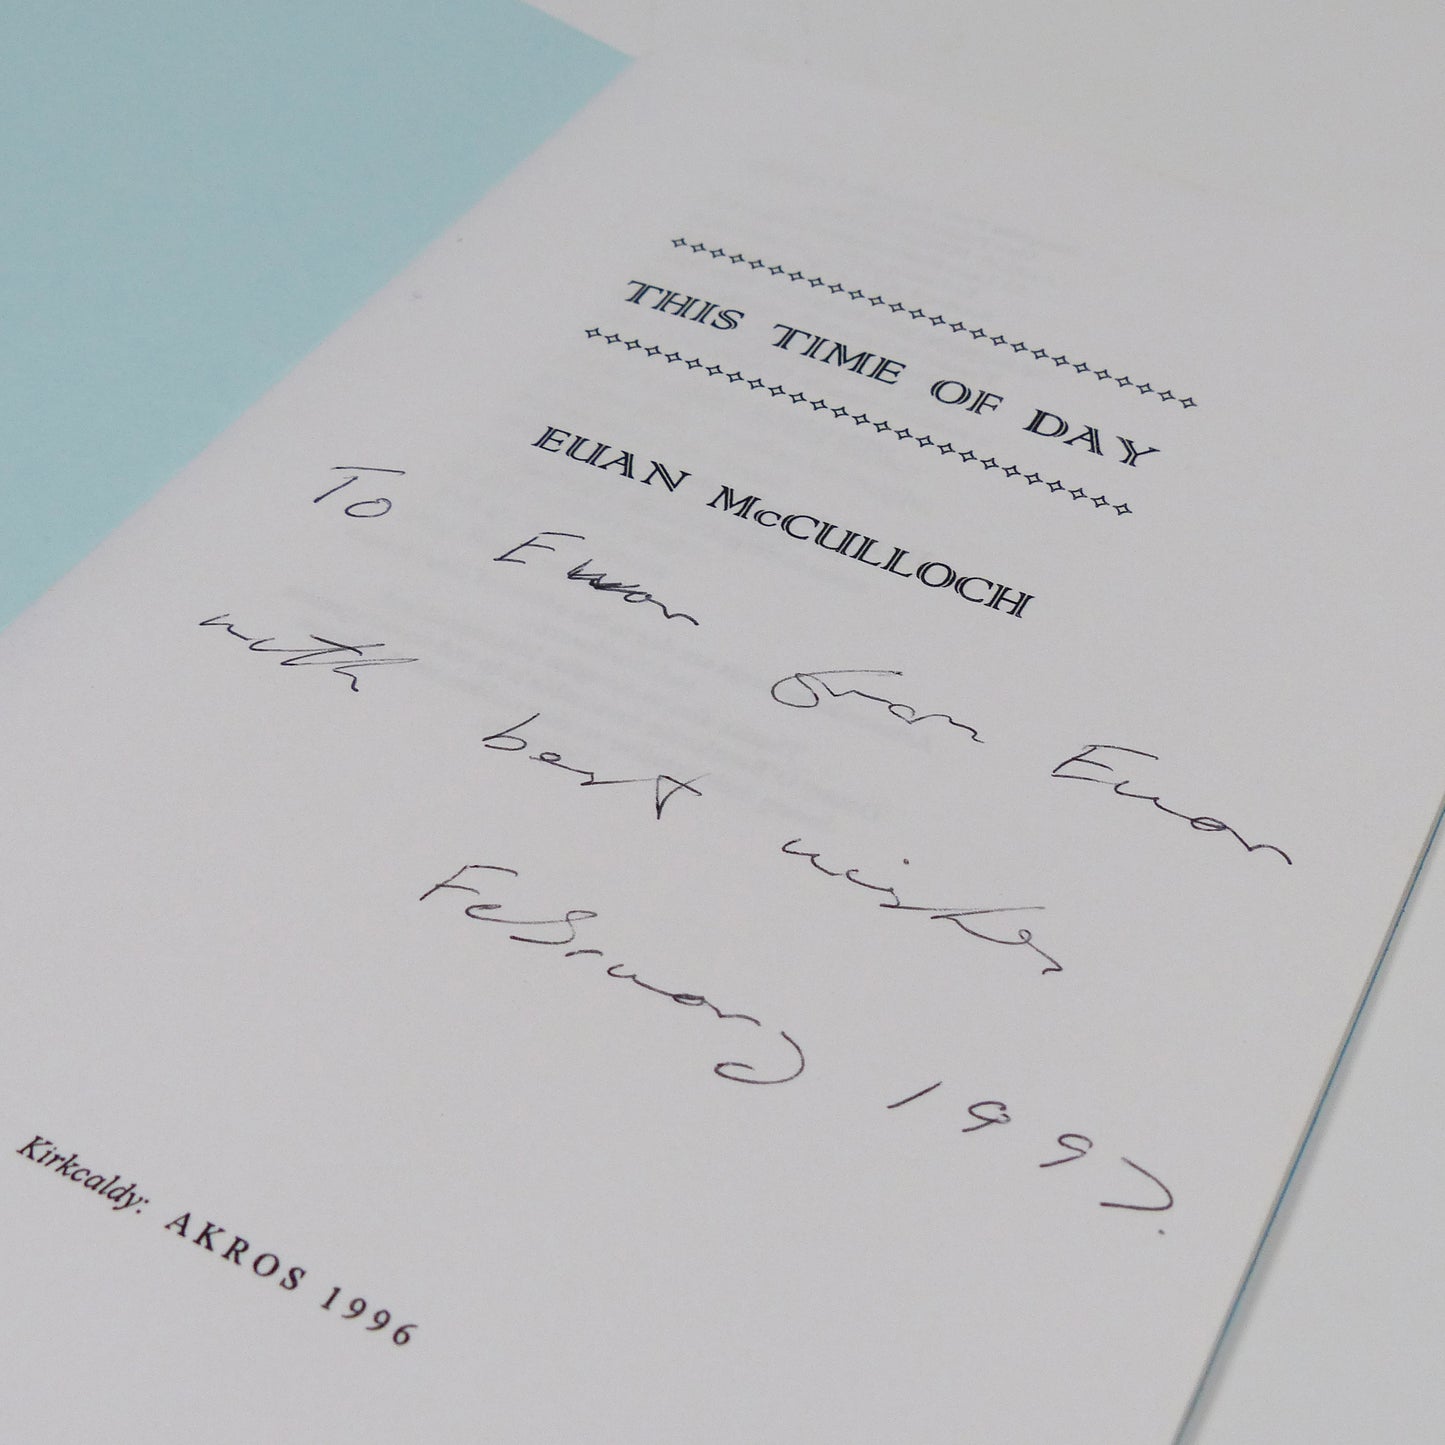 THIS TIME OF DAY
EUAN McCULLOCH
To Euan from Euan
with best wishes
February 1997.
Kirkcaldy: AKROS 1996